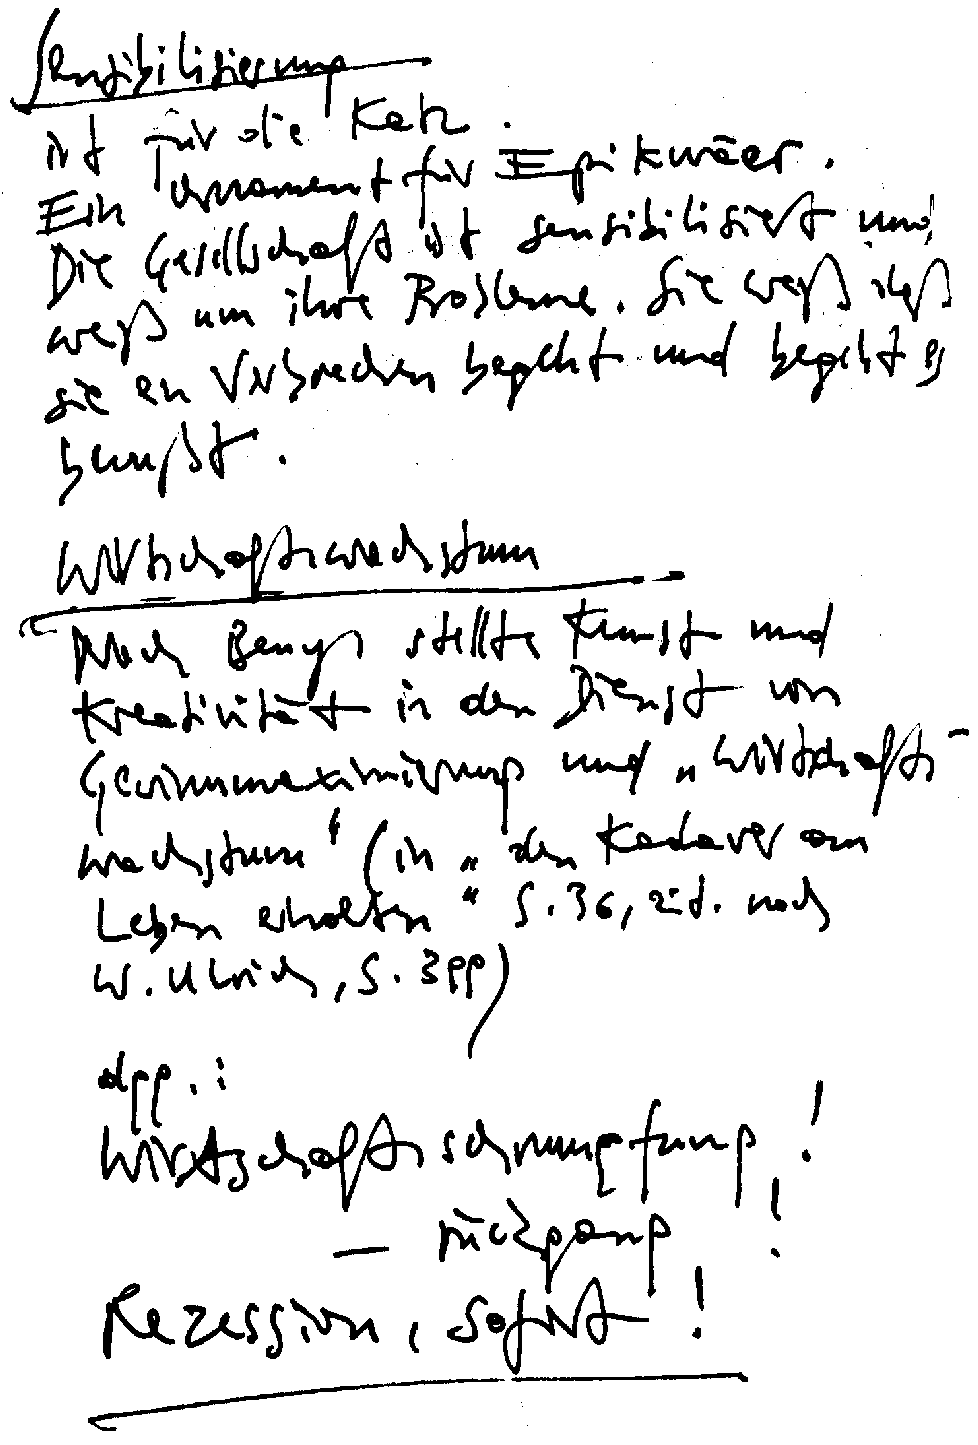 Sensibilisierung
ist für die Katz.
Ein Ornament für Epikuräer.
Die Gesellschaft ist sensibilisiert und
weiß um ihre Probleme. Sie weiß daß
sie en Verbrechen begeht und begeht es
bewußt.
Wirtschaftswachstum
Nach Beuys stellte Kunst und
Kreativität in den Dienst von
Gewinnmaximierung und „Wirtschafts-
wachstum“ (in „den Kadaver am
Leben erhalten“ S. 36, zit. nach
W. Ullrich, S. 3pp)
dgg.:
Wirtschaftsschrumpfung!
— rückgang!
Rezession, sofort!